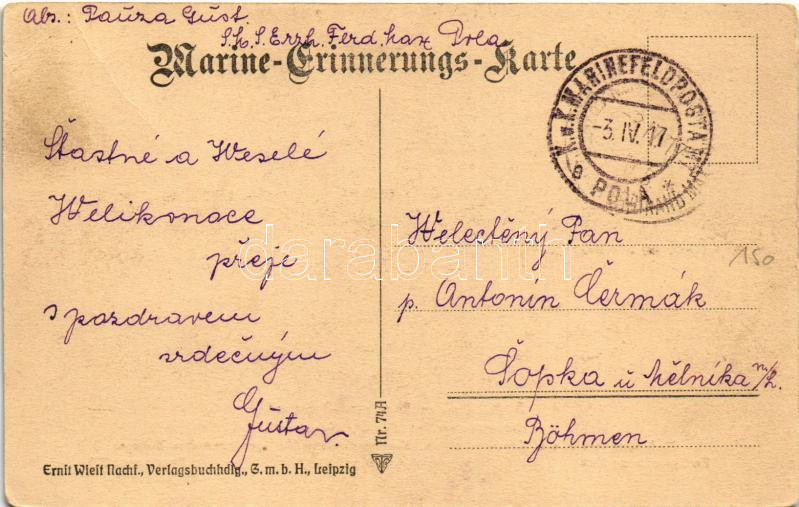 Abs.: Pauza Gust.
S.M.S. Erzh. Ferd. Max Pola
Marine-Erinnerungs-Karte
K.u.K. MARINEFELDPOSTAMT
-3. IV. 17
e POLA *
Štastné a Weselé
Welikonoce
přeje
s pozdravem
srdečným
Gustav.
Welectěný Pan
p. Antonín Čermák
Šopka u Mělnika n/L.
Böhmen
150
Nr. 74A
Ernst Wiest Nachf., Verlagsbuchhdlg., G. m. b. H., Leipzig
darabanth